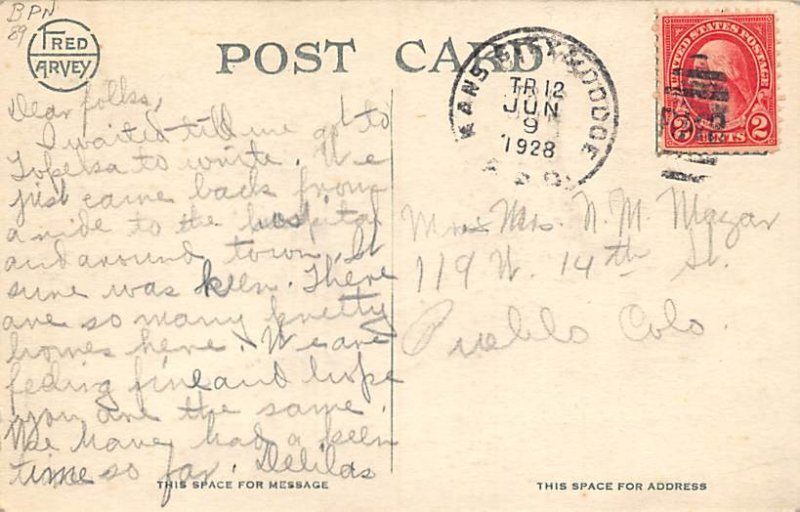 BPN
89
FRED
HARVEY
POST CARD
KANS. CITY & DODGE
TR 12
JUN
9
1928
R.P.O.
UNITED STATES POSTAGE
2 CENTS 2
Dear folks,
I waited till we got to
Topeka to write. We
just came back from
a ride to the hospital
and around town. It
sure was keen. There
are so many pretty
homes here. We are
feeling fine and hope
you are the same.
We have had a keen
time so far. Delilas
Mr & Mrs. N. M. Mazar
119 W. 14th St.
Pueblo Colo.
THIS SPACE FOR MESSAGE
THIS SPACE FOR ADDRESS